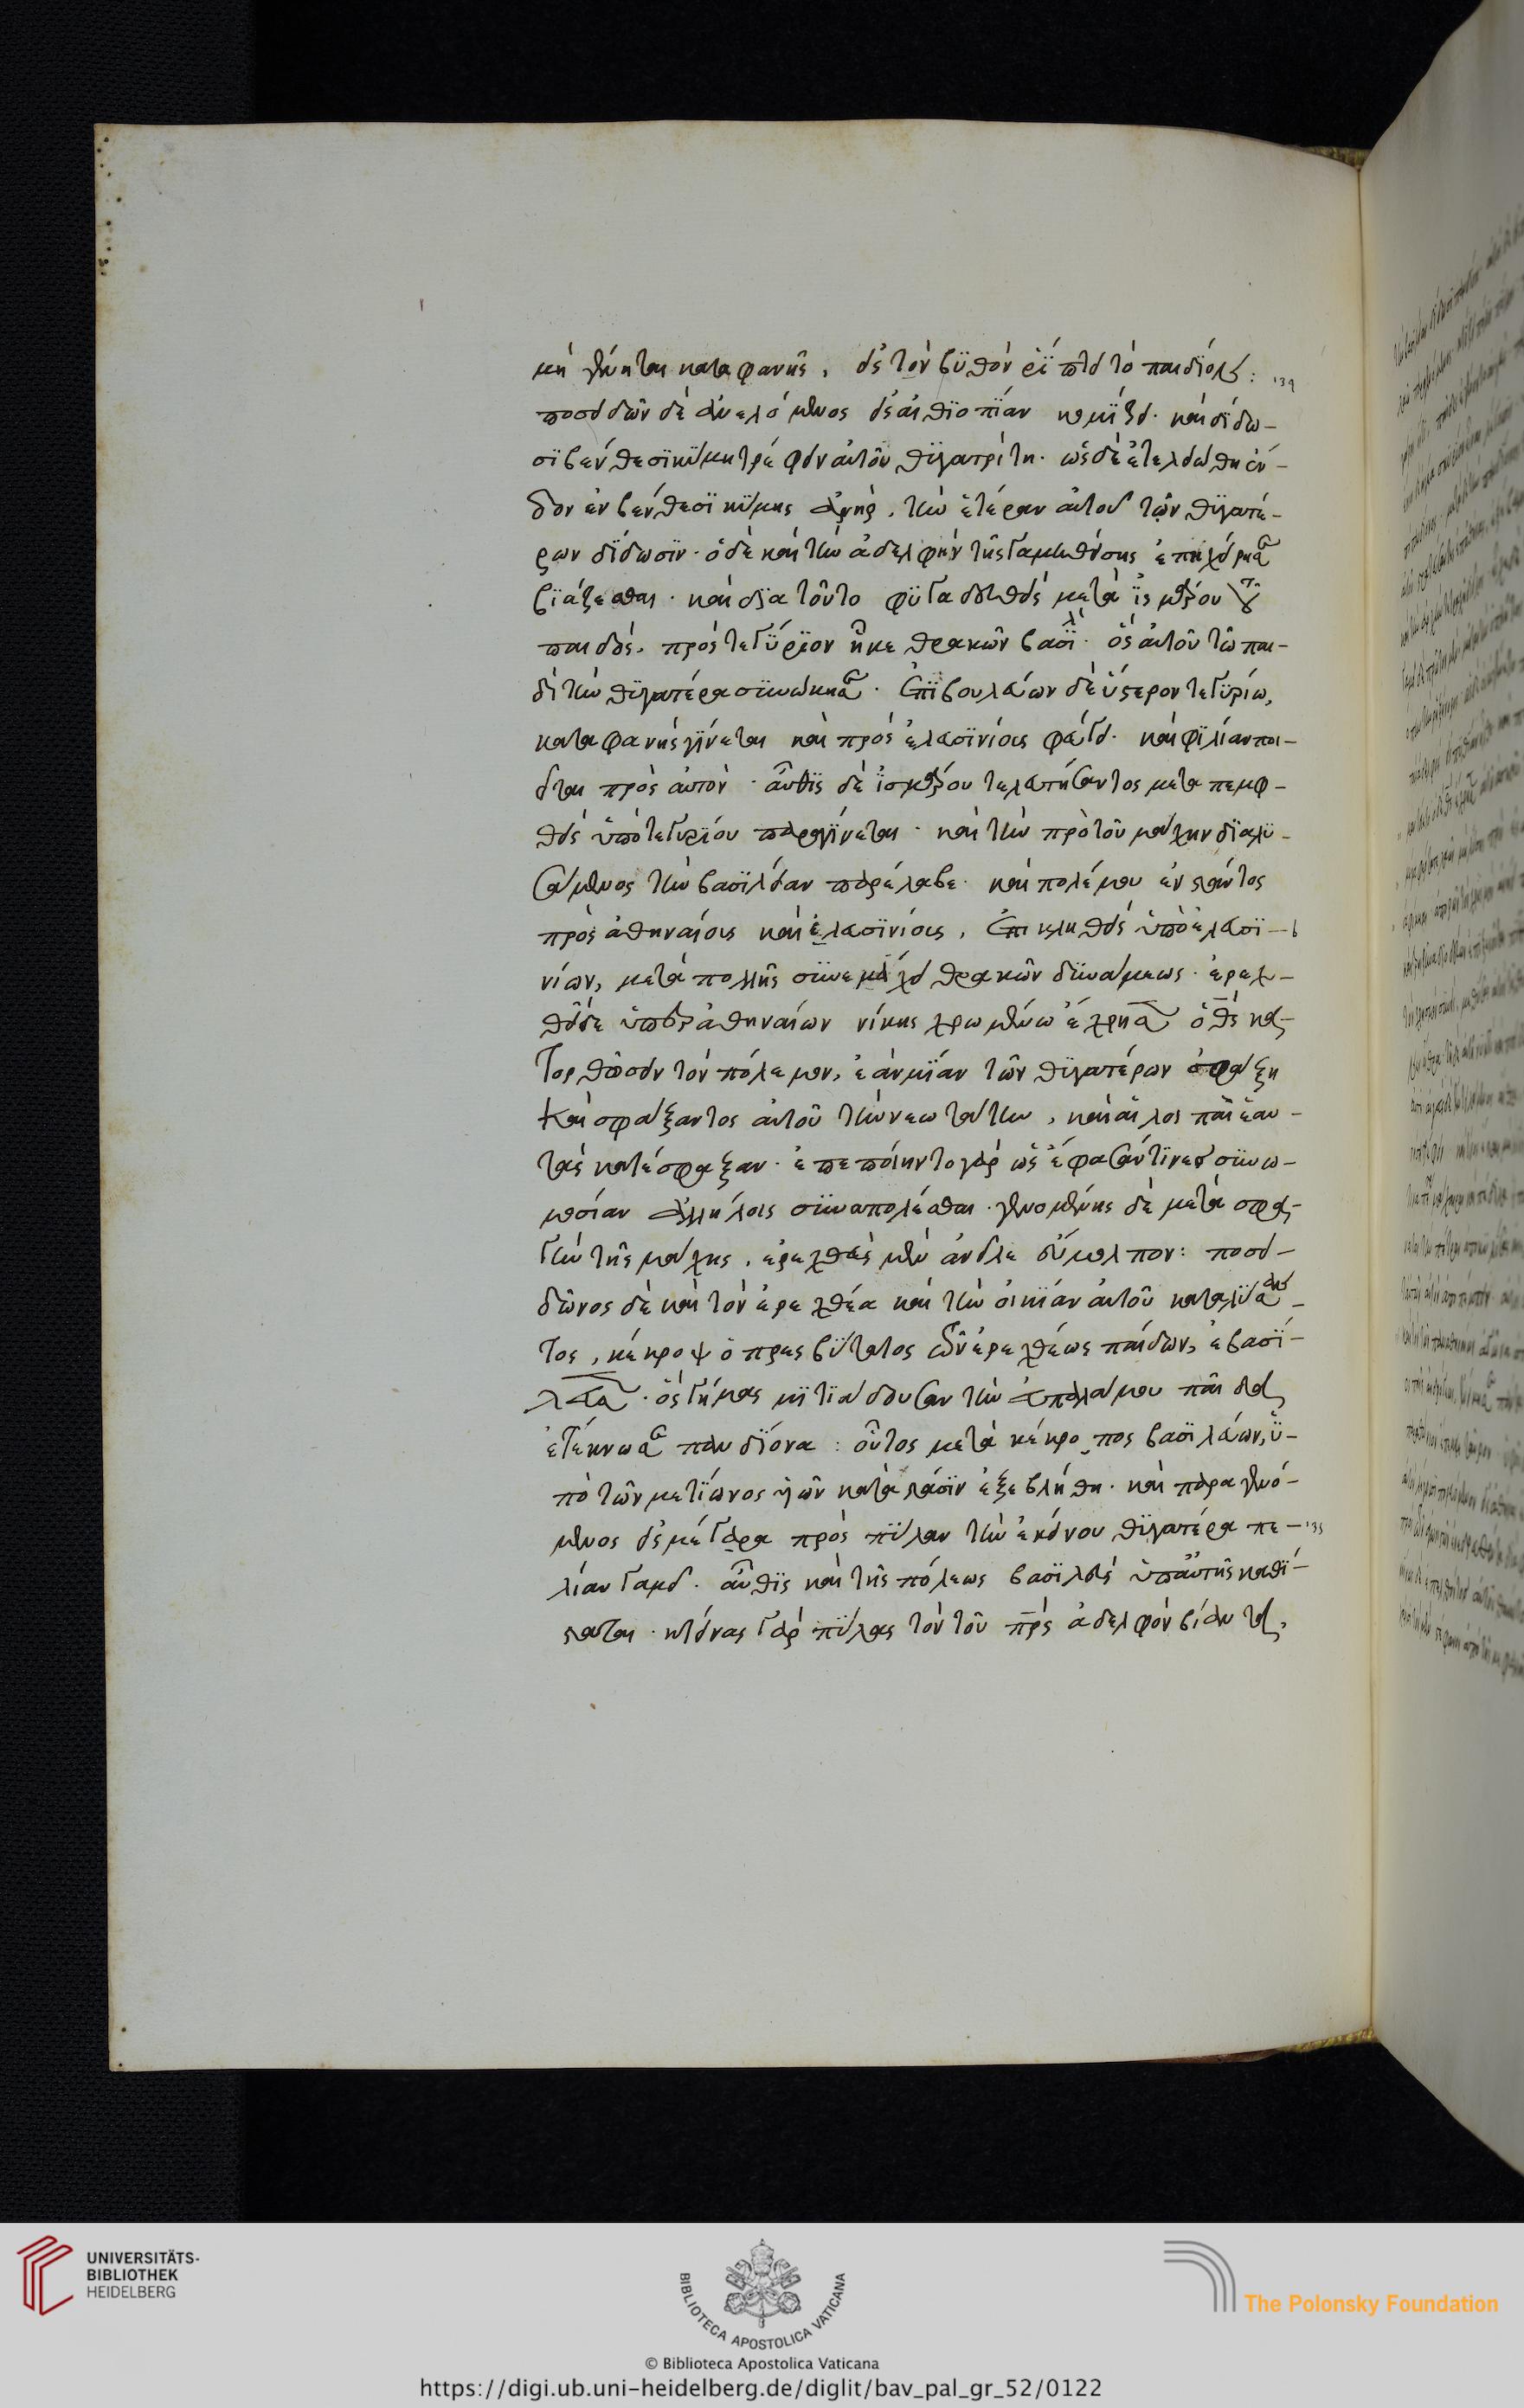 μὴ γένηται καταφανὴς, εἰς τὸν βυθὸν ῥίπτει τὸ παιδίον: 139
ποσειδῶν δὲ ἀνελόμενος εἰς αἰθιοπίαν κομίζει· καὶ δίδω-
σι βενθεσικύμη τρέφειν αὐτοῦ θυγατρὶ τῆ· ὡς δὲ ἐτελειώθη ἔν-
δον ἐν βενθεσικύμης ἀνὴρ, τὴν ἑτέραν αὐτοῦ τῶν θυγατέ-
ρων δίδωσιν· ὁ δὲ καὶ τὴν ἀδελφὴν τῆς γαμηθείσης ἐπεχείρησε
βιάζεσθαι· καὶ διὰ τοῦτο φυγαδευθεὶς μετὰ ἰσμάρου τοῦ
παιδὸς, πρὸς τεγύριον ἧκε θρακῶν βασιλ· ὃς αὐτοῦ τῶ παι-
δὶ τὴν θυγατέρα συνώκησε· ἐπιβουλεύων δὲ ὕστερον τεγυρίω,
καταφανὴς γίνεται καὶ πρὸς ἐλασινίους φεύγει· καὶ φιλίαν ποι-
εῖται πρὸς αὐτὸν· αὖθις δὲ ἰσμάρου τελευτήσαντος μεταπεμφ-
θεὶς ὑπὸ τεγυρίου παραγίνεται· καὶ τὴν πρὸ τοῦ μάχην διαλυ-
σάμενος τὴν βασιλείαν παρέλαβε· καὶ πολέμου ἐνστάντος
πρὸς ἀθηναίους καὶ ἐλασινίοις, ἐπικληθεὶς ὑπὸ ἐλασι-
νίων, μετὰ πολλῆς συνεμάχει θρακῶν δυνάμεως· ἐρεχ-
θεῖ δὲ ὑπὲρ ἀθηναίων νίκης χρωμένω ἔχρησεν ὁ θεὸς κα-
τορθώσειν τὸν πόλεμον, ἐὰν μίαν τῶν θυγατέρων σφάξη
καὶ σφάξαντος αὐτοῦ τὴν νεωτάτην, καὶ αἱ λοιπαὶ ἑαυ-
τὰς κατέσφαξαν· ἐπεποίηντο γὰρ ὡς ἔφασάν τινες συνω-
μοσίαν ἀλλήλοις συναπολέσθαι· γενομένης δὲ μετὰ σφα-
γὴν τῆς μάχης, ἐρεχθεὺς μὲν ἀνεῖλε εὔμολπον: ποσει-
δῶνος δὲ καὶ τὸν ἐρεχθέα καὶ τὴν οἰκίαν αὐτοῦ καταλύσαν-
τος, κέκροψ ὁ πρεσβύτατος τῶν ἐρεχθέως παίδων, ἐβασί-
λευσεν· ὃς γήμας μιτιάδουσαν τὴν εὐπαλάμου παῖδα
ἐτέκνωσε πανδίονα: οὗτος μετὰ κέκροπος βασιλεύων, ὑ-
πὸ τῶν μετίωνος υἱῶν κατὰ στάσιν ἐξεβλήθη· καὶ παραγενό-
μενος εἰς μέγαρα πρὸς πύλαν τὴν ἐκείνου θυγατέρα πε- 135
λίαν γαμεῖ. αὖθις καὶ τῆς πόλεως βασιλεὺς ὑπ αὐτῆς καθί-
σταται· κτείνας γὰρ πύλας τὸν τοῦ πρς ἀδελφὸν βίαντα,
UNIVERSITÄTS-
BIBLIOTHEK
HEIDELBERG
BIBLIOTECA APOSTOLICA VATICANA
The Polonsky Foundation
© Biblioteca Apostolica Vaticana
https://digi.ub.uni-heidelberg.de/diglit/bav_pal_gr_52/0122